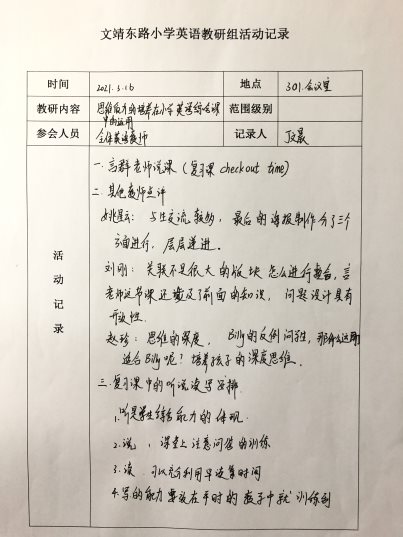 文靖东路小学英语教研组活动记录
时间 2021.3.16 地点 301会议室
教研内容 思维能力的培养在小学英语综合课 范围级别
中的运用
参会人员 全体英语教师 记录人
活动记录
一.高群老师说课（复习课 checkout time）
二.其他教师点评
与生交流较少，最后的海报制作分了三个
方面进行，层层递进。
刘刚：关联不是很大的版块怎么进行整合，高
老师这节课还涉及了前面的知识，问题设计具有
开放性.
赵珍：思维的深度，Billy的反例问学生，那什么
适合Billy呢？培养孩子的深度思维。
三.复习课中的听说读写安排
1.听是学生综合能力的体现.
2.说，课堂上注意问答的训练
3.读.可以充分利用早读等时间
4.写的能力要放在平时的教学中就训练到